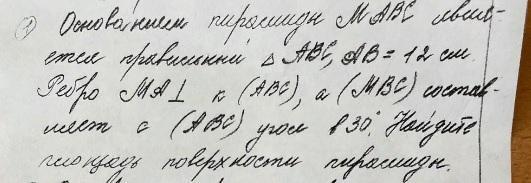 ① Основанием пирамиды MABC явля-
ется правильный △ ABC, AB = 12 см.
Ребро MA ⊥ к (ABC), а (MBC) состав-
ляет с (ABC) угол в 30°. Найдите
площадь поверхности пирамиды.